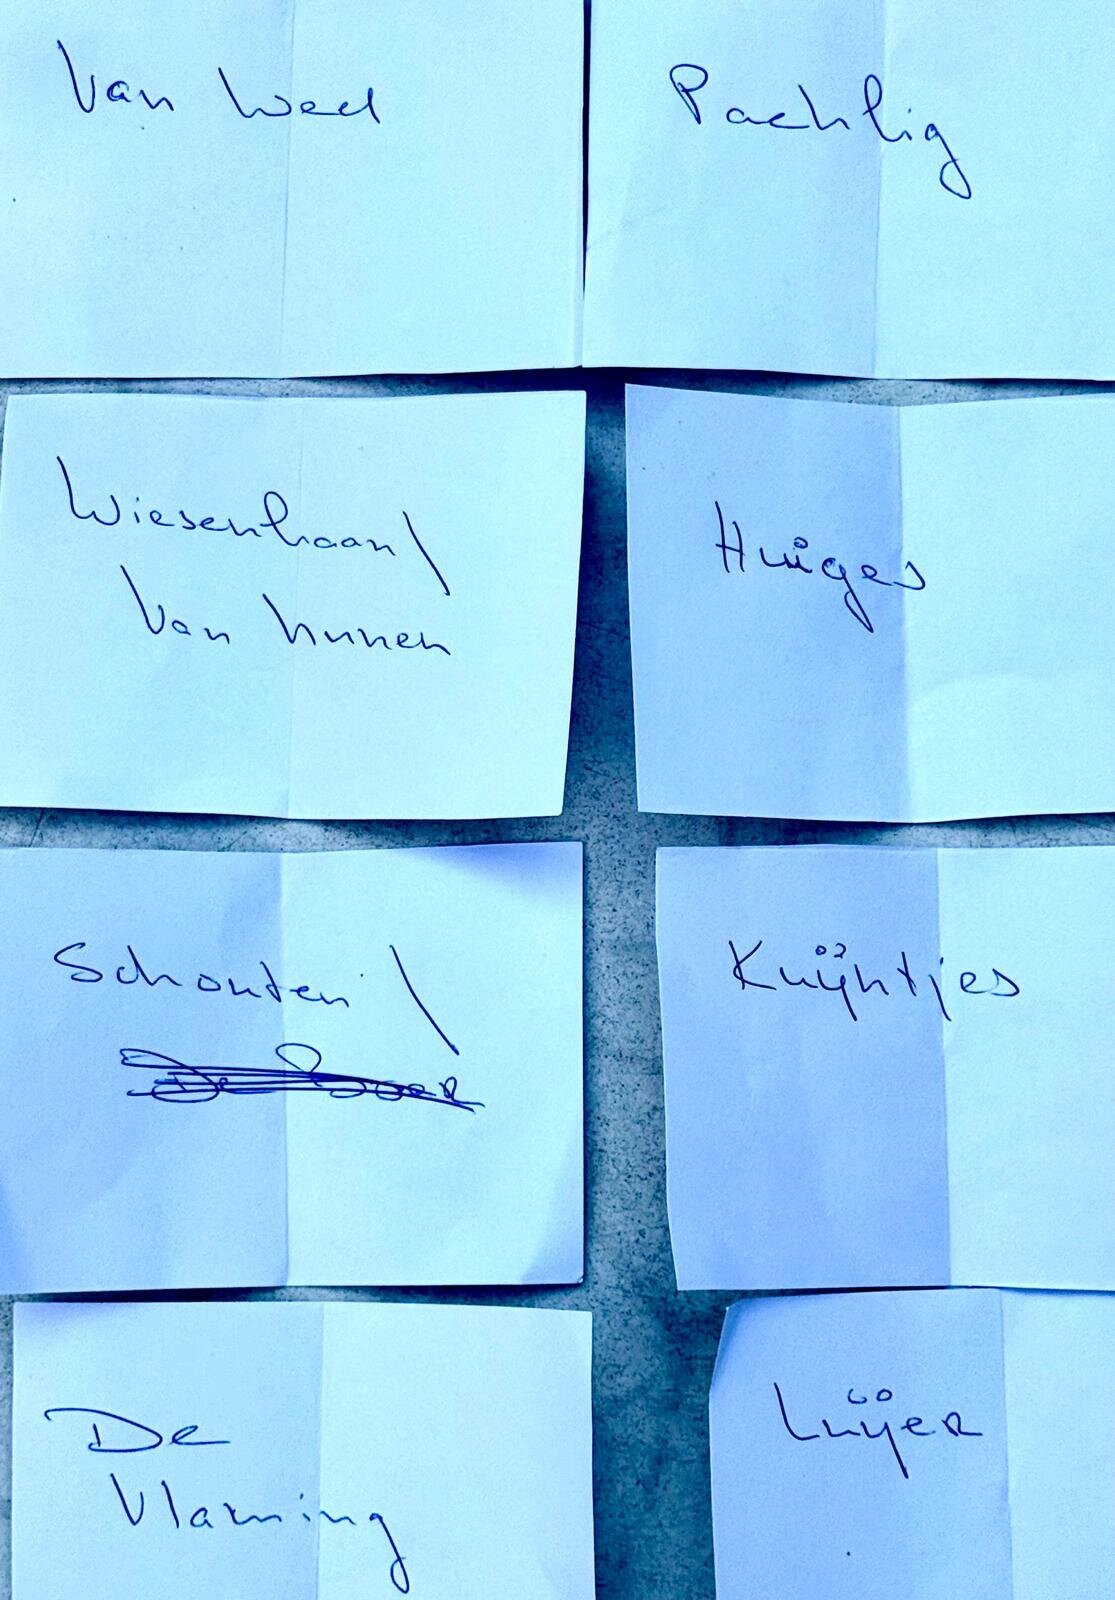 Van Weel
Pachlig
Wiesenhaan\
Van Hunen
Huiges
Schouten \
De Boer
Kuijntjes
De
Vlaming
Luijer